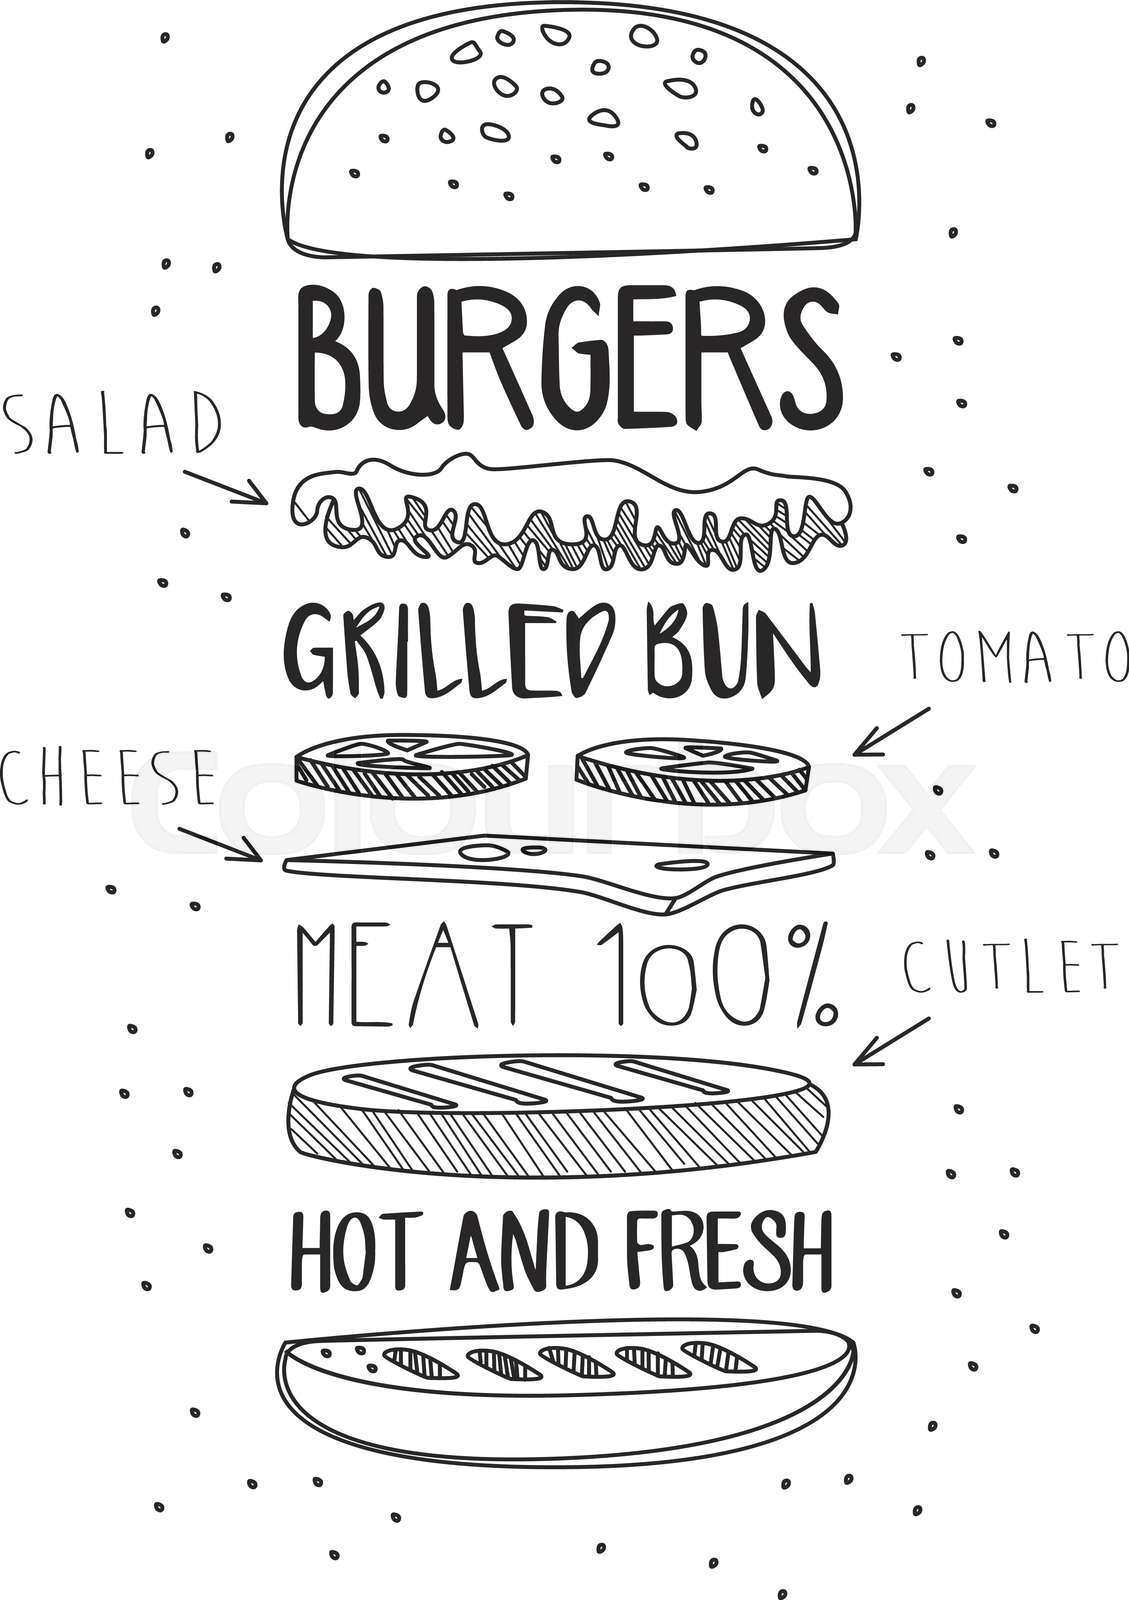 BURGERS
SALAD
GRILLED BUN
TOMATO
CHEESE
colourbox
MEAT 100%
CUTLET
HOT AND FRESH